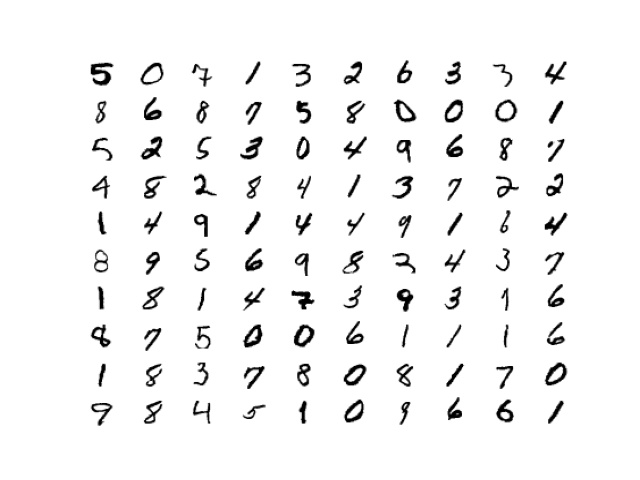 5 0 7 1 3 2 6 3 3 4
8 6 8 7 5 8 0 0 0 1
5 2 5 3 0 4 9 6 8 7
4 8 2 8 4 1 3 7 2 2
1 4 9 1 4 4 9 1 6 4
8 9 5 6 9 8 2 4 3 7
1 8 1 4 7 3 9 3 1 6
8 7 5 0 0 6 1 1 1 6
1 8 3 7 8 0 8 1 7 0
9 8 4 5 1 0 9 6 6 1